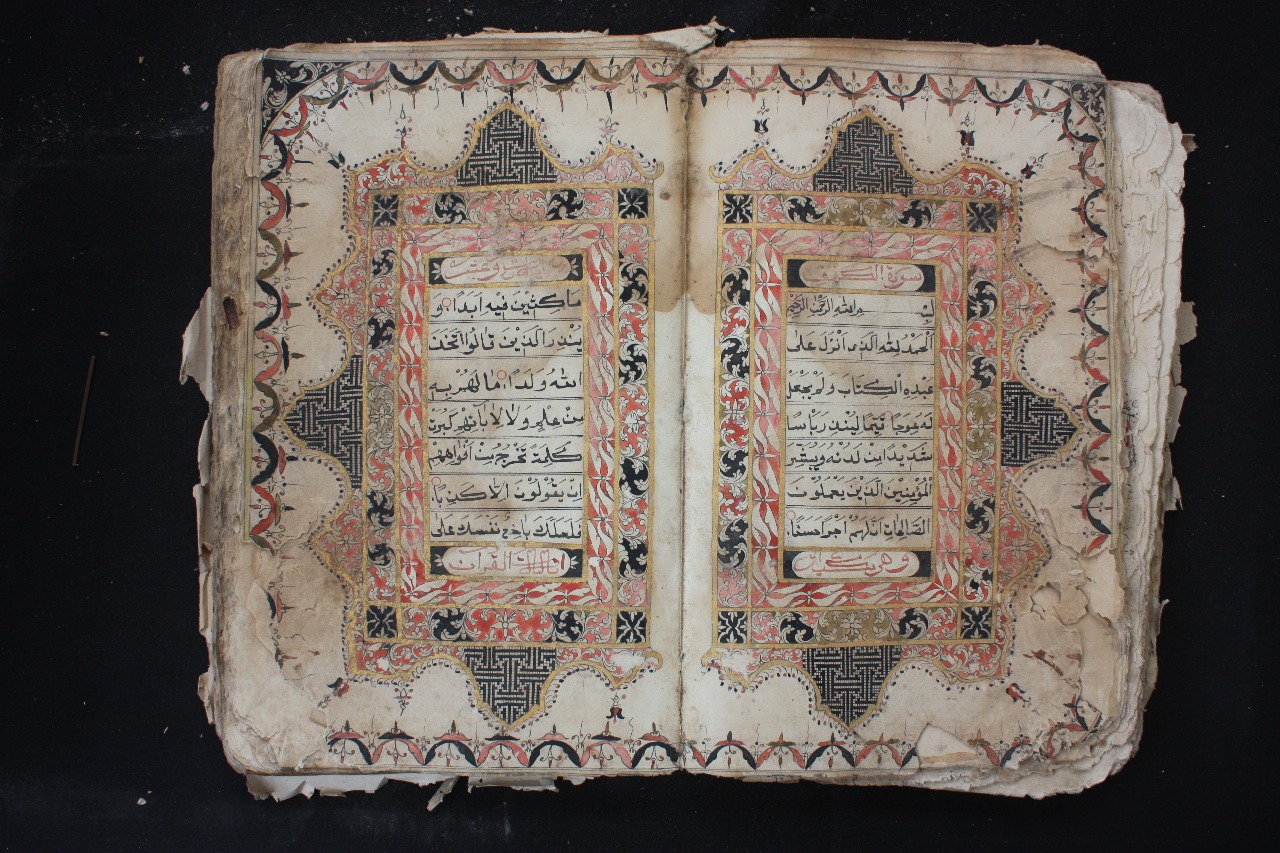 سورة الكهف
بسم الله الرحمن الرحيم
الحمد لله الذي انزل على
عبده الكتاب ولم يجعل
له عوجا قيما لينذر باسا
شديدا من لدنه ويبشر
المؤمنين الذين يعملون
الصالحات ان لهم اجرا حسنا
ماكثين فيه ابدا و
ينذر الذين قالوا اتخذ
الله ولدا ما لهم به
من علم ولا لابائهم كبرت
كلمة تخرج من افواههم
ان يقولون الا كذبا
فلعلك باخع نفسك على
القران